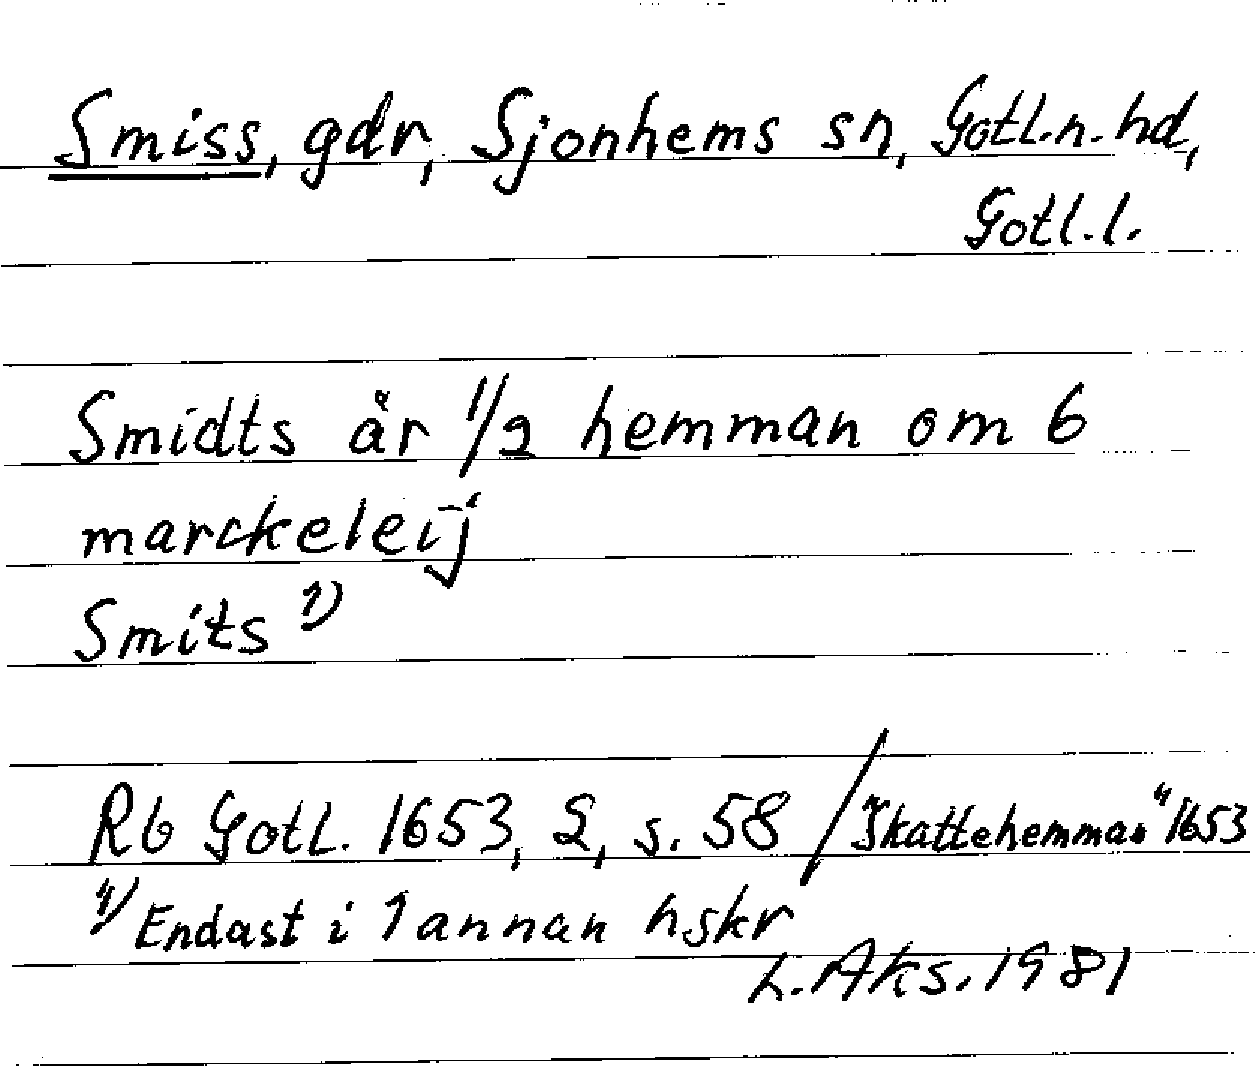 Smiss, gdr, Sjonhems sn, Gotl.n. hd,
Gotl. l.
Smidts är 1/2 hemman om 6
marckeleij
Smits 1)
Rb Gotl. 1653, 2, s. 58 / "Skattehemman" 1653
1) Endast i 1 annan hskr
L. Aks. 1981